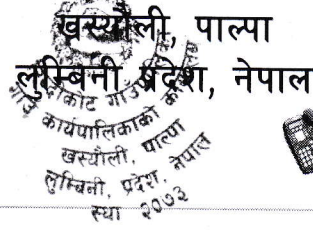 खस्यौली, पाल्पा
लुम्बिनी प्रदेश, नेपाल
गाउँ कार्यपालिकाको
खस्यौली, पाल्पा
लुम्बिनी, प्रदेश, नेपाल
स्था २०७३